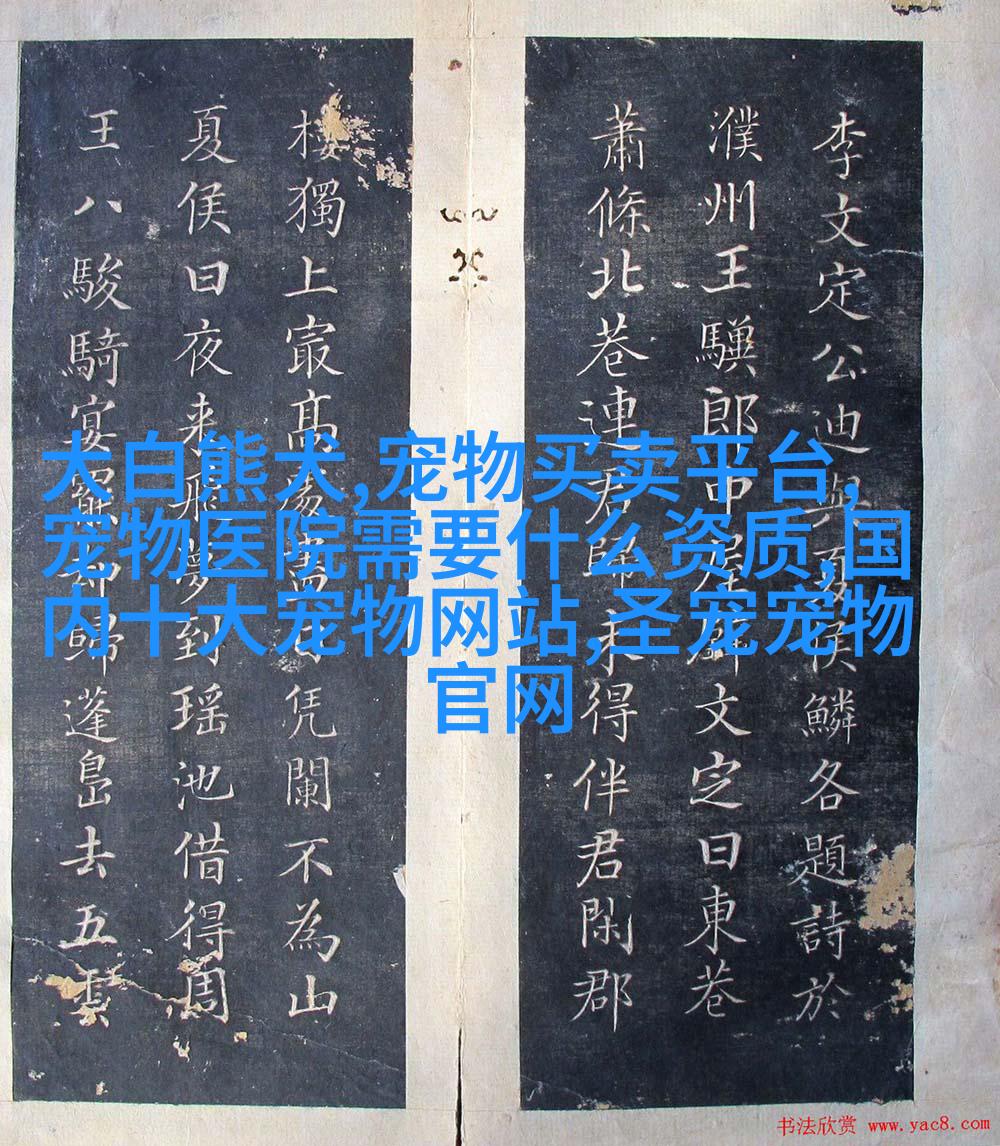 李文定公迪與夏侯鱗各題詩於
濮州王郎中屋壁文定曰東巷
蕭條北巷連君歸未得伴君閑郡
樓獨上寂髙處凭闌不為山
夏侯曰夜来飛夢到瑶池借得周
王八駿騎宴罷却歸蓬島去五雲
大白熊犬,宠物买卖平台,
宠物医院需要什么资质,国
内十大宠物网站,圣宠宠物
官网
书法欣赏 www.yac8.com